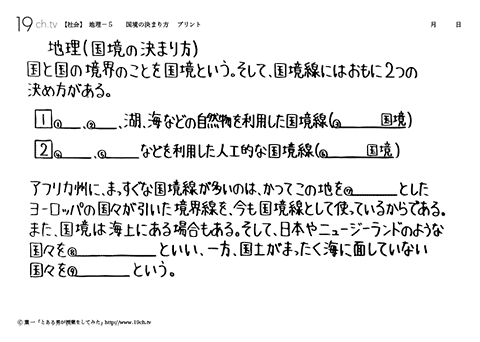 19ch.tv 【社会】 地理－5 国境の決まり方 プリント 月 日
地理(国境の決まり方)
国と国の境界のことを国境という。そして、国境線にはおもに2つの
決め方がある。
1 ①____、②____、湖、海などの自然物を利用した国境線(③____国境)
2 ④____、⑤____などを利用した人工的な国境線(⑥____国境)
アフリカ州に、まっすぐな国境線が多いのは、かつてこの地を⑦____とした
ヨーロッパの国々が引いた境界線を、今も国境線として使っているからである。
また、国境は海上にある場合もある。そして、日本やニュージーランドのような
国々を⑧____といい、一方、国土がまったく海に面していない
国々を⑨____という。
© 葉一「とある男が授業をしてみた」http://www.19ch.tv